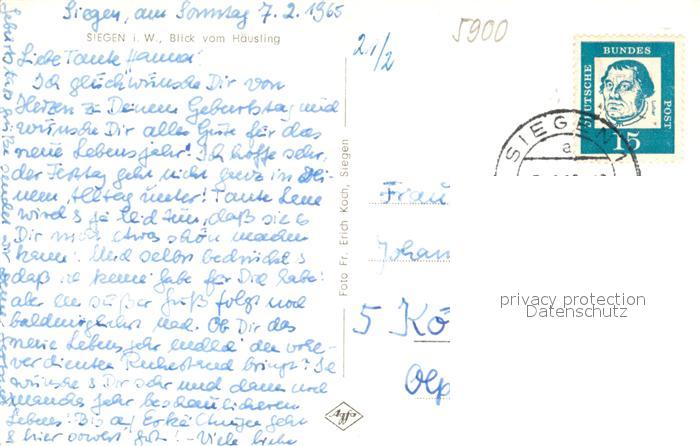 Siegen, am Sonntag 7.2.1965
SIEGEN i. W., Blick vom Häusling
Liebe Tante Hanna!
Ich glückwünsche Dir von
Herzen zu Deinem Geburtstag und
wünsche Dir alles Gute für das
neue Lebensjahr! Ich hoffe sehr,
der Festtag geht nicht ganz in Dei-
nem Alltag unter! Tante Lene
wird es ja leid tun, daß sie es
Dir nicht etwas schön machen
kann! Und selbst
daß ich keine Gabe für Dich habe:
aber ein süßer Gruß folgt noch
baldmöglichst nach. Ob Dir das
neue Lebensjahr endlich den wohl-
verdienten Ruhestand bringt? Ich
wünsche es Dir sehr und dann noch
manches Jahr beschaulicheren
Lebens! Bis auf geht
es hier soweit gut! - Viele liebe
Foto Fr. Erich Koch, Siegen
Agfa
21/2
5900
DEUTSCHE
BUNDES
POST
15
SIEGEN 1
a
Frau
Johan
5 Kö
Olp
privacy protection
Datenschutz